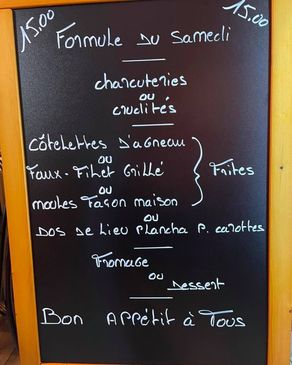 15.00 15.00
Formule Du Samedi
charcuteries
ou
crudités
côtelettes D'agneau
ou
Faux-Filet Grillé
ou
Frites
moules Façon maison
ou
Dos de Lieu Plancha P. carottes
Fromage
ou
Dessert
Bon Appétit à Tous